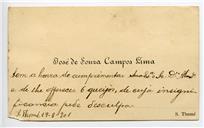 José de Souza Campos Lima
tem a honra de cumprimentar
e de lhe offerecer 6 queijos, de cuja insigni-
ficancia pede desculpa.
S. Thomé
S. Thomé